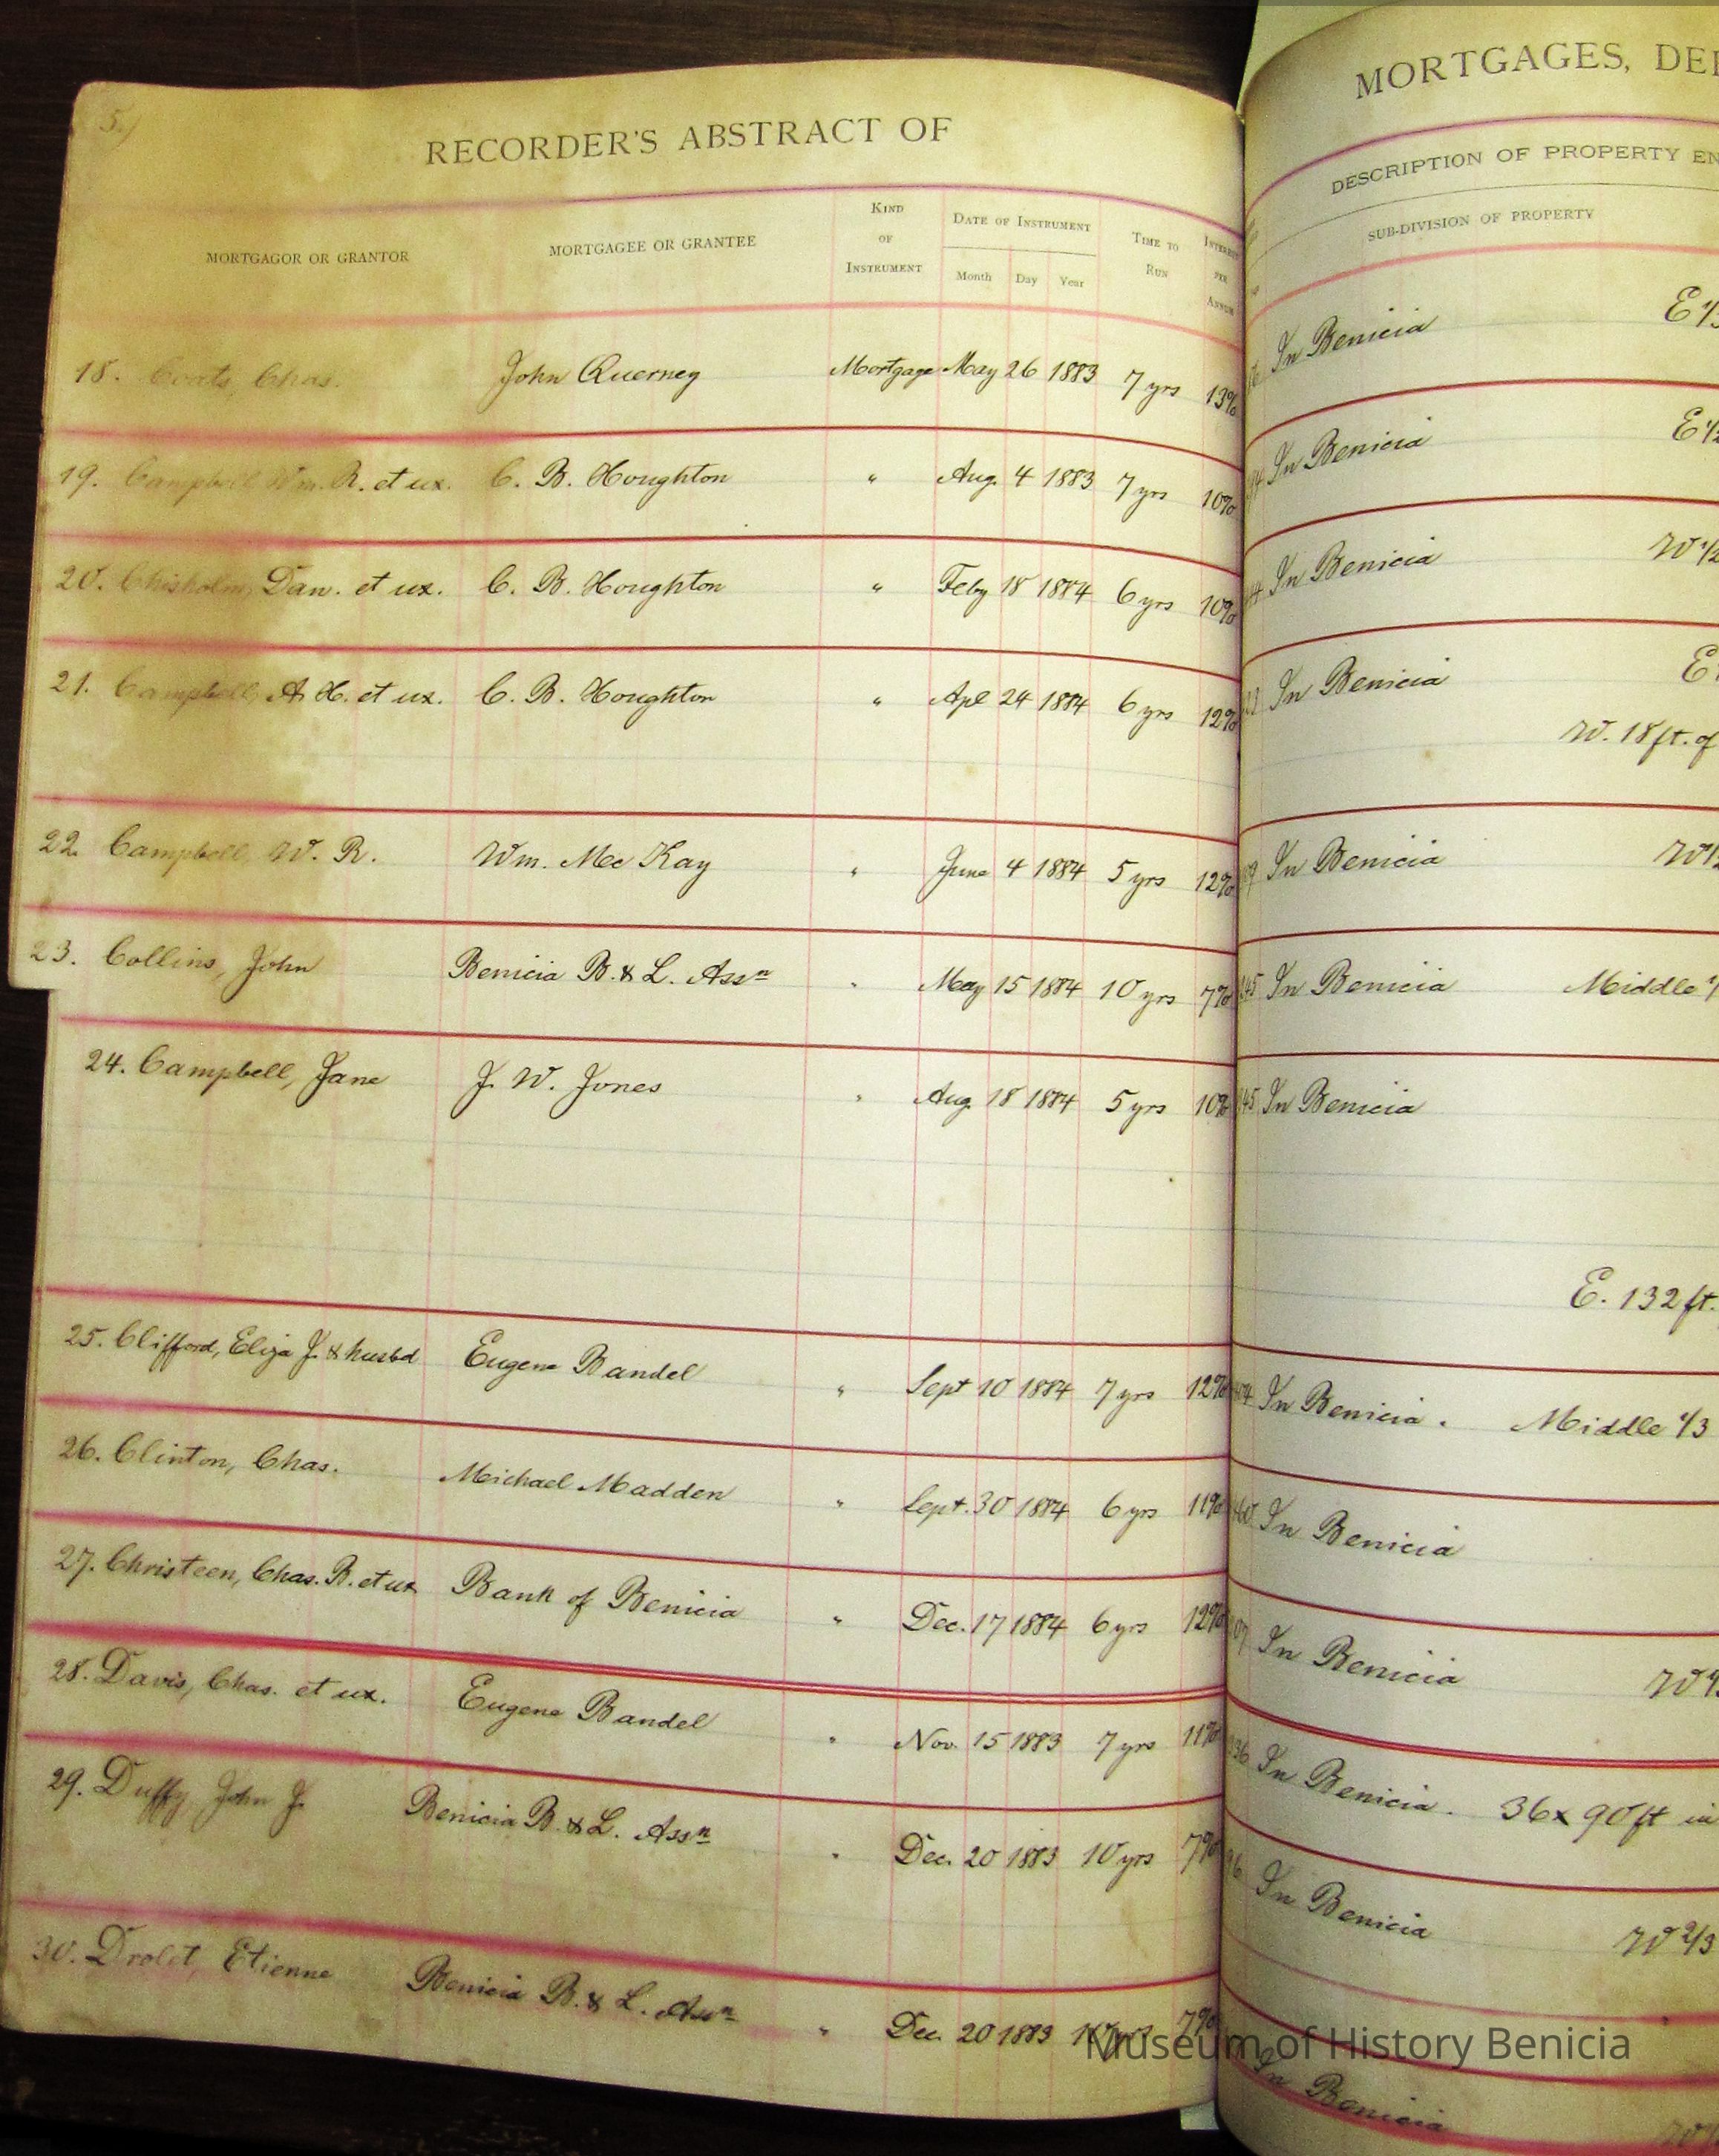 5.)
RECORDER'S ABSTRACT OF
MORTGAGOR OR GRANTOR
MORTGAGEE OR GRANTEE
KIND OF INSTRUMENT
DATE OF INSTRUMENT
Month Day Year
TIME TO RUN
INTEREST PER ANNUM
18. Coats, Chas. John Querney Mortgage May 26 1883 7 yrs 13%
19. Campbell Wm. R. et ux. C. B. Houghton " Aug. 4 1883 7 yrs 10%
20. Chisholm, Dan. et ux. C. B. Houghton " Feby 18 1884 6 yrs 10%
21. Campbell, A. H. et ux. C. B. Houghton " Apl 24 1884 6 yrs 12%
22. Campbell, W. R. Wm. McKay " June 4 1884 5 yrs 12%
23. Collins, John Benicia B. & L. Assn " May 15 1884 10 yrs 7%
24. Campbell, Jane J. W. Jones " Aug. 18 1884 5 yrs 10%
25. Clifford, Eliza J. & husbd Eugene Bandel " Sept 10 1884 7 yrs 12%
26. Clinton, Chas. Michael Madden " Sept. 30 1884 6 yrs 11%
27. Christeen, Chas. B. et ux Bank of Benicia " Dec. 17 1884 6 yrs 12%
28. Davis, Chas. et ux. Eugene Bandel " Nov. 15 1883 7 yrs 11%
29. Duffy, John J. Benicia B. & L. Assn " Dec. 20 1883 10 yrs 7%
30. Drolet, Etienne Benicia B. & L. Assn " Dec. 20 1883 10 yrs 7%
MORTGAGES,
DESCRIPTION OF PROPERTY
SUB-DIVISION OF PROPERTY
In Benicia E
In Benicia E
In Benicia W 1/2
In Benicia E
W. 18 ft. of
In Benicia W
In Benicia Middle
In Benicia
E. 132 ft.
In Benicia. Middle 1/3
In Benicia
In Benicia W
In Benicia. 36 x 90 ft in
In Benicia W 2/3
In Benicia
Museum of History Benicia